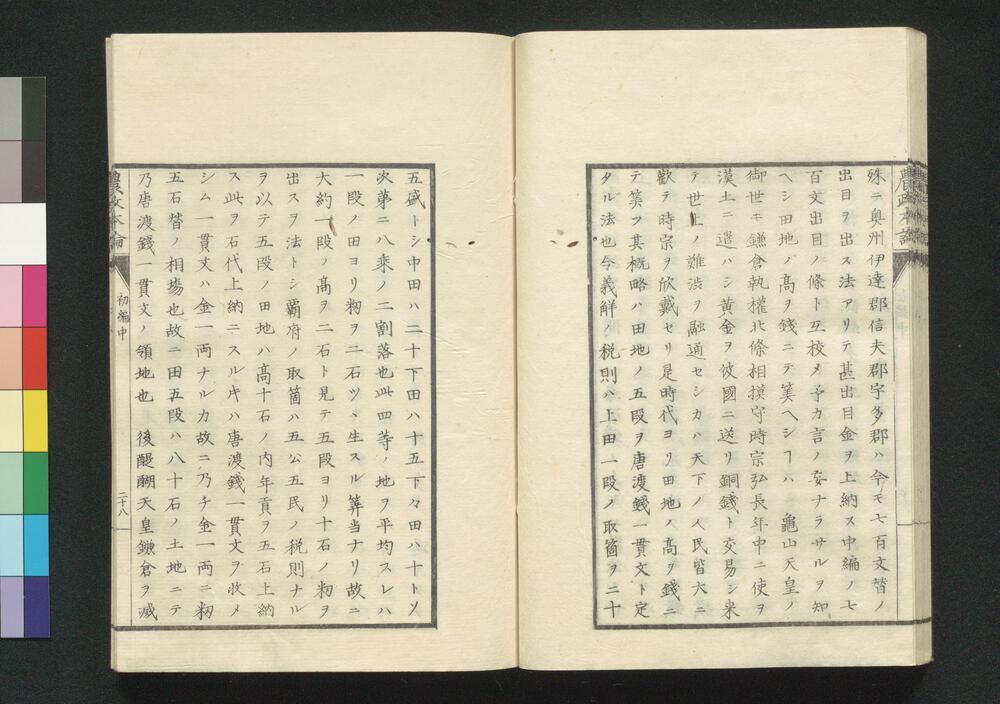 殊ニ奥州伊達郡信夫郡宇多郡ハ今モ七百文替ノ
出目ヲ出ス法アリテ甚出目金ヲ上納ス中編ノ七
百文出目ノ條ト互校メ予カ言ノ妄ナラサルヲ知
ヘシ田地ノ髙ヲ錢ニテ筭ヘシヿハ　龜山天皇ノ
御世モ鎌倉執權北條相摸守時宗弘長年中ニ使ヲ
漢土ニ遣ハシ黄金ヲ彼國ニ送リ銅錢ト交易シ来
テ世上ノ難渋ヲ融通セシカハ天下ノ人民皆大ニ
歡テ時宗ヲ欣戴セリ是時代ヨリ田地ノ髙ヲ錢ニ
テ筭フ其概略ハ田地ノ五段ヲ唐渡錢一貫文ト定
タル法也今義解ノ税則ハ上田一段ノ取箇ヲ二十
五盛トシ中田ハ二十下田ハ十五下々田ハ十トソ
次第ニ八乘ノ二割落也此四等ノ地ヲ平均スレハ
一段ノ田ヨリ籾ヲ二石ツヽ生スル筭当ナリ故ニ
大約一段ノ髙ヲ二石ト見テ五段ヨリ十石ノ籾ヲ
出スヲ法トシ覇府ノ取箇ハ五公五民ノ税則ナル
ヲ以テ五段ノ田地ハ髙十石ノ内年貢ヲ五石上納
ス此ヲ石代上納ニスルキハ唐渡錢一貫文ヲ收メ
シム一貫文ハ金一両ナルカ故ニ乃チ金一両ニ籾
五石替ノ相場也故ニ田五段ハ八十石ノ土地ニテ
乃唐渡錢一貫文ノ領地也　後醍醐天皇鎌倉ヲ滅
農政本論
初編中
二十八